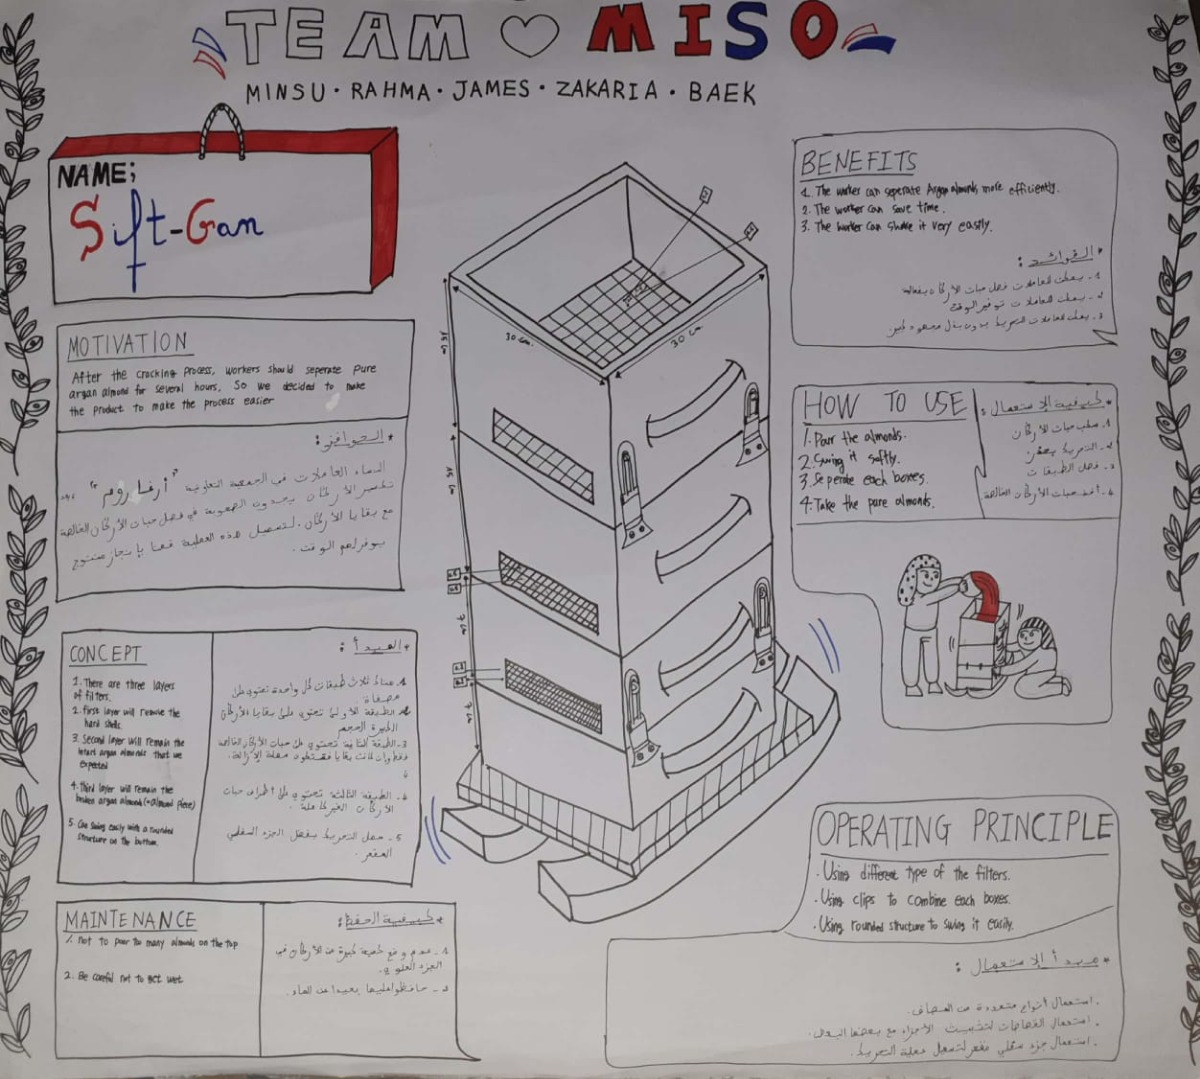 TEAM ♡ MISO
MINSU · RAHMA · JAMES · ZAKARIA · BAEK
NAME;
Sift-Gan
MOTIVATION
After the cracking process, workers should seperate pure
argan almond for several hours. So we decided to make
the product to make the process easier
* الحوافز:
النساء العاملات في الجمعية التعاونية "أرغاروم"
يجدون الصعوبة في فصل حبات الأركان الخالصة
مع بقايا الأركان. لتسهيل هذه العملية قمنا بإنجاز منتوج
يوفر لهم الوقت.
CONCEPT
1. There are three layers
of filters.
2. First layer will remove the
hard shells.
3. Second layer will remain the
intact argan almonds that we
expected
4. Third layer will remain the
broken argan almond (=almond piece)
5. Can swing easily with a rounded
structure on the bottom.
* المبدأ :
1. هناك ثلاث طبقات كل واحدة تحتوي على
مصفاة
2. الطبقة الأولى تحتوي على بقايا الأركان
الكبيرة الحجم
3. الطبقة الثانية تحتوي على حبات الأركان الخالصة
4. الطبقة الثالثة تحتوي على أطراف حبات
الأركان الغير كاملة.
5. سهل التحريك بفضل الجزء السفلي
المقعر.
MAINTENANCE
1. Not to pour too many almonds on the top
2. Be careful not to get wet
* كيفية الحفظ:
1. عدم وضع كمية كبيرة من الأركان في
الجزء العلوي.
2. حافظوا عليها بعيدا عن الماء.
30 cm.
30 cm.
BENEFITS
1. The worker can seperate Argan almonds more efficiently.
2. The worker can save time.
3. The worker can shake it very easily.
* الفوائد :
1. يمكن للعاملات فصل حبات الأركان بفعالية
2. يمكن للعاملات توفير الوقت
3. يمكن للعاملات التحريك بدون بذل مجهود كبير.
HOW TO USE
1. Pour the almonds.
2. Swing it softly.
3. Seperate each boxes.
4. Take the pure almonds.
* كيفية الإستعمال :
1. صب حبات الأركان
2. التحريك بحذر
3. فصل الطبقات
4. أخذ حبات الأركان الخالصة
OPERATING PRINCIPLE
· Using different type of the filters.
· Using clips to combine each boxes.
· Using rounded structure to swing it easily.
* مبدأ الإستعمال :
. استعمال أنواع متعددة من المصاف.
. استعمال القفاصات لتثبيث الأجزاء مع بعضها البعض.
. استعمال جزء سفلي مقعر لتسهيل عملية التحريك.